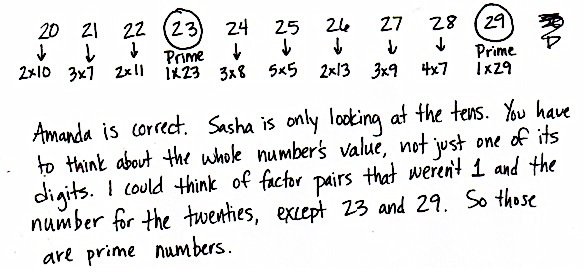 20 21 22 23 24 25 26 27 28 29
Prime Prime
2x10 3x7 2x11 1x23 3x8 5x5 2x13 3x9 4x7 1x29
Amanda is correct. Sasha is only looking at the tens. You have
to think about the whole number's value, not just one of its
digits. I could think of factor pairs that weren't 1 and the
number for the twenties, except 23 and 29. So those
are prime numbers.